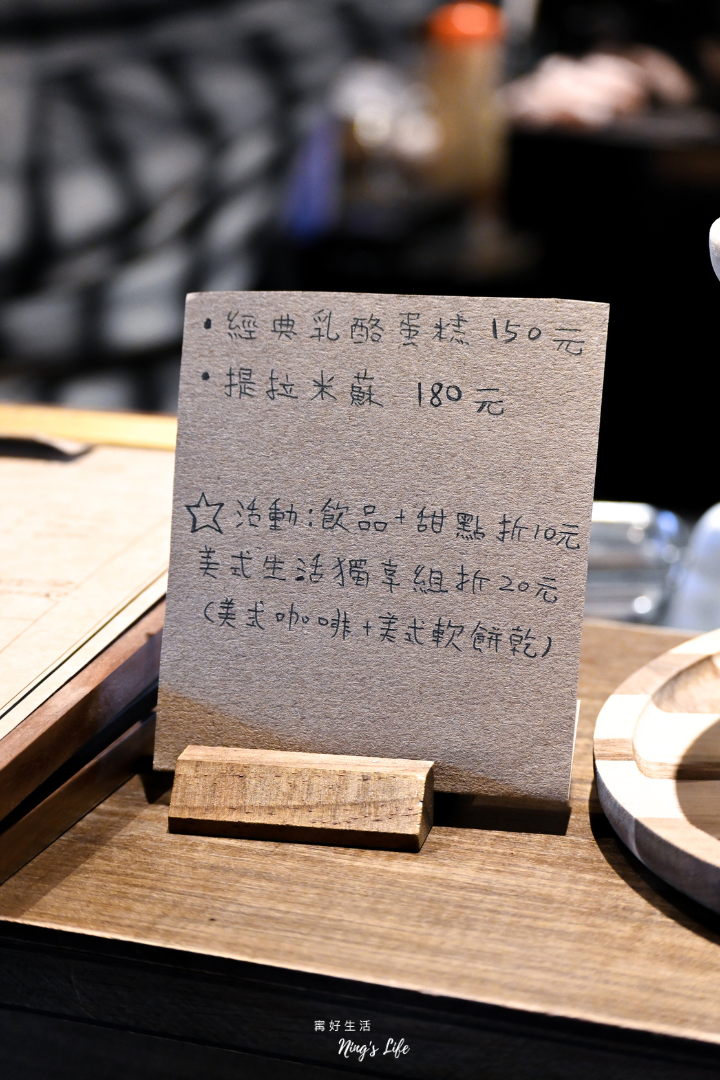 • 經典乳酪蛋糕 150元
• 提拉米蘇 180元
☆ 活動:飲品+甜點折10元
美式生活獨享組折20元
(美式咖啡+美式軟餅乾)
寗好生活
Ning's Life